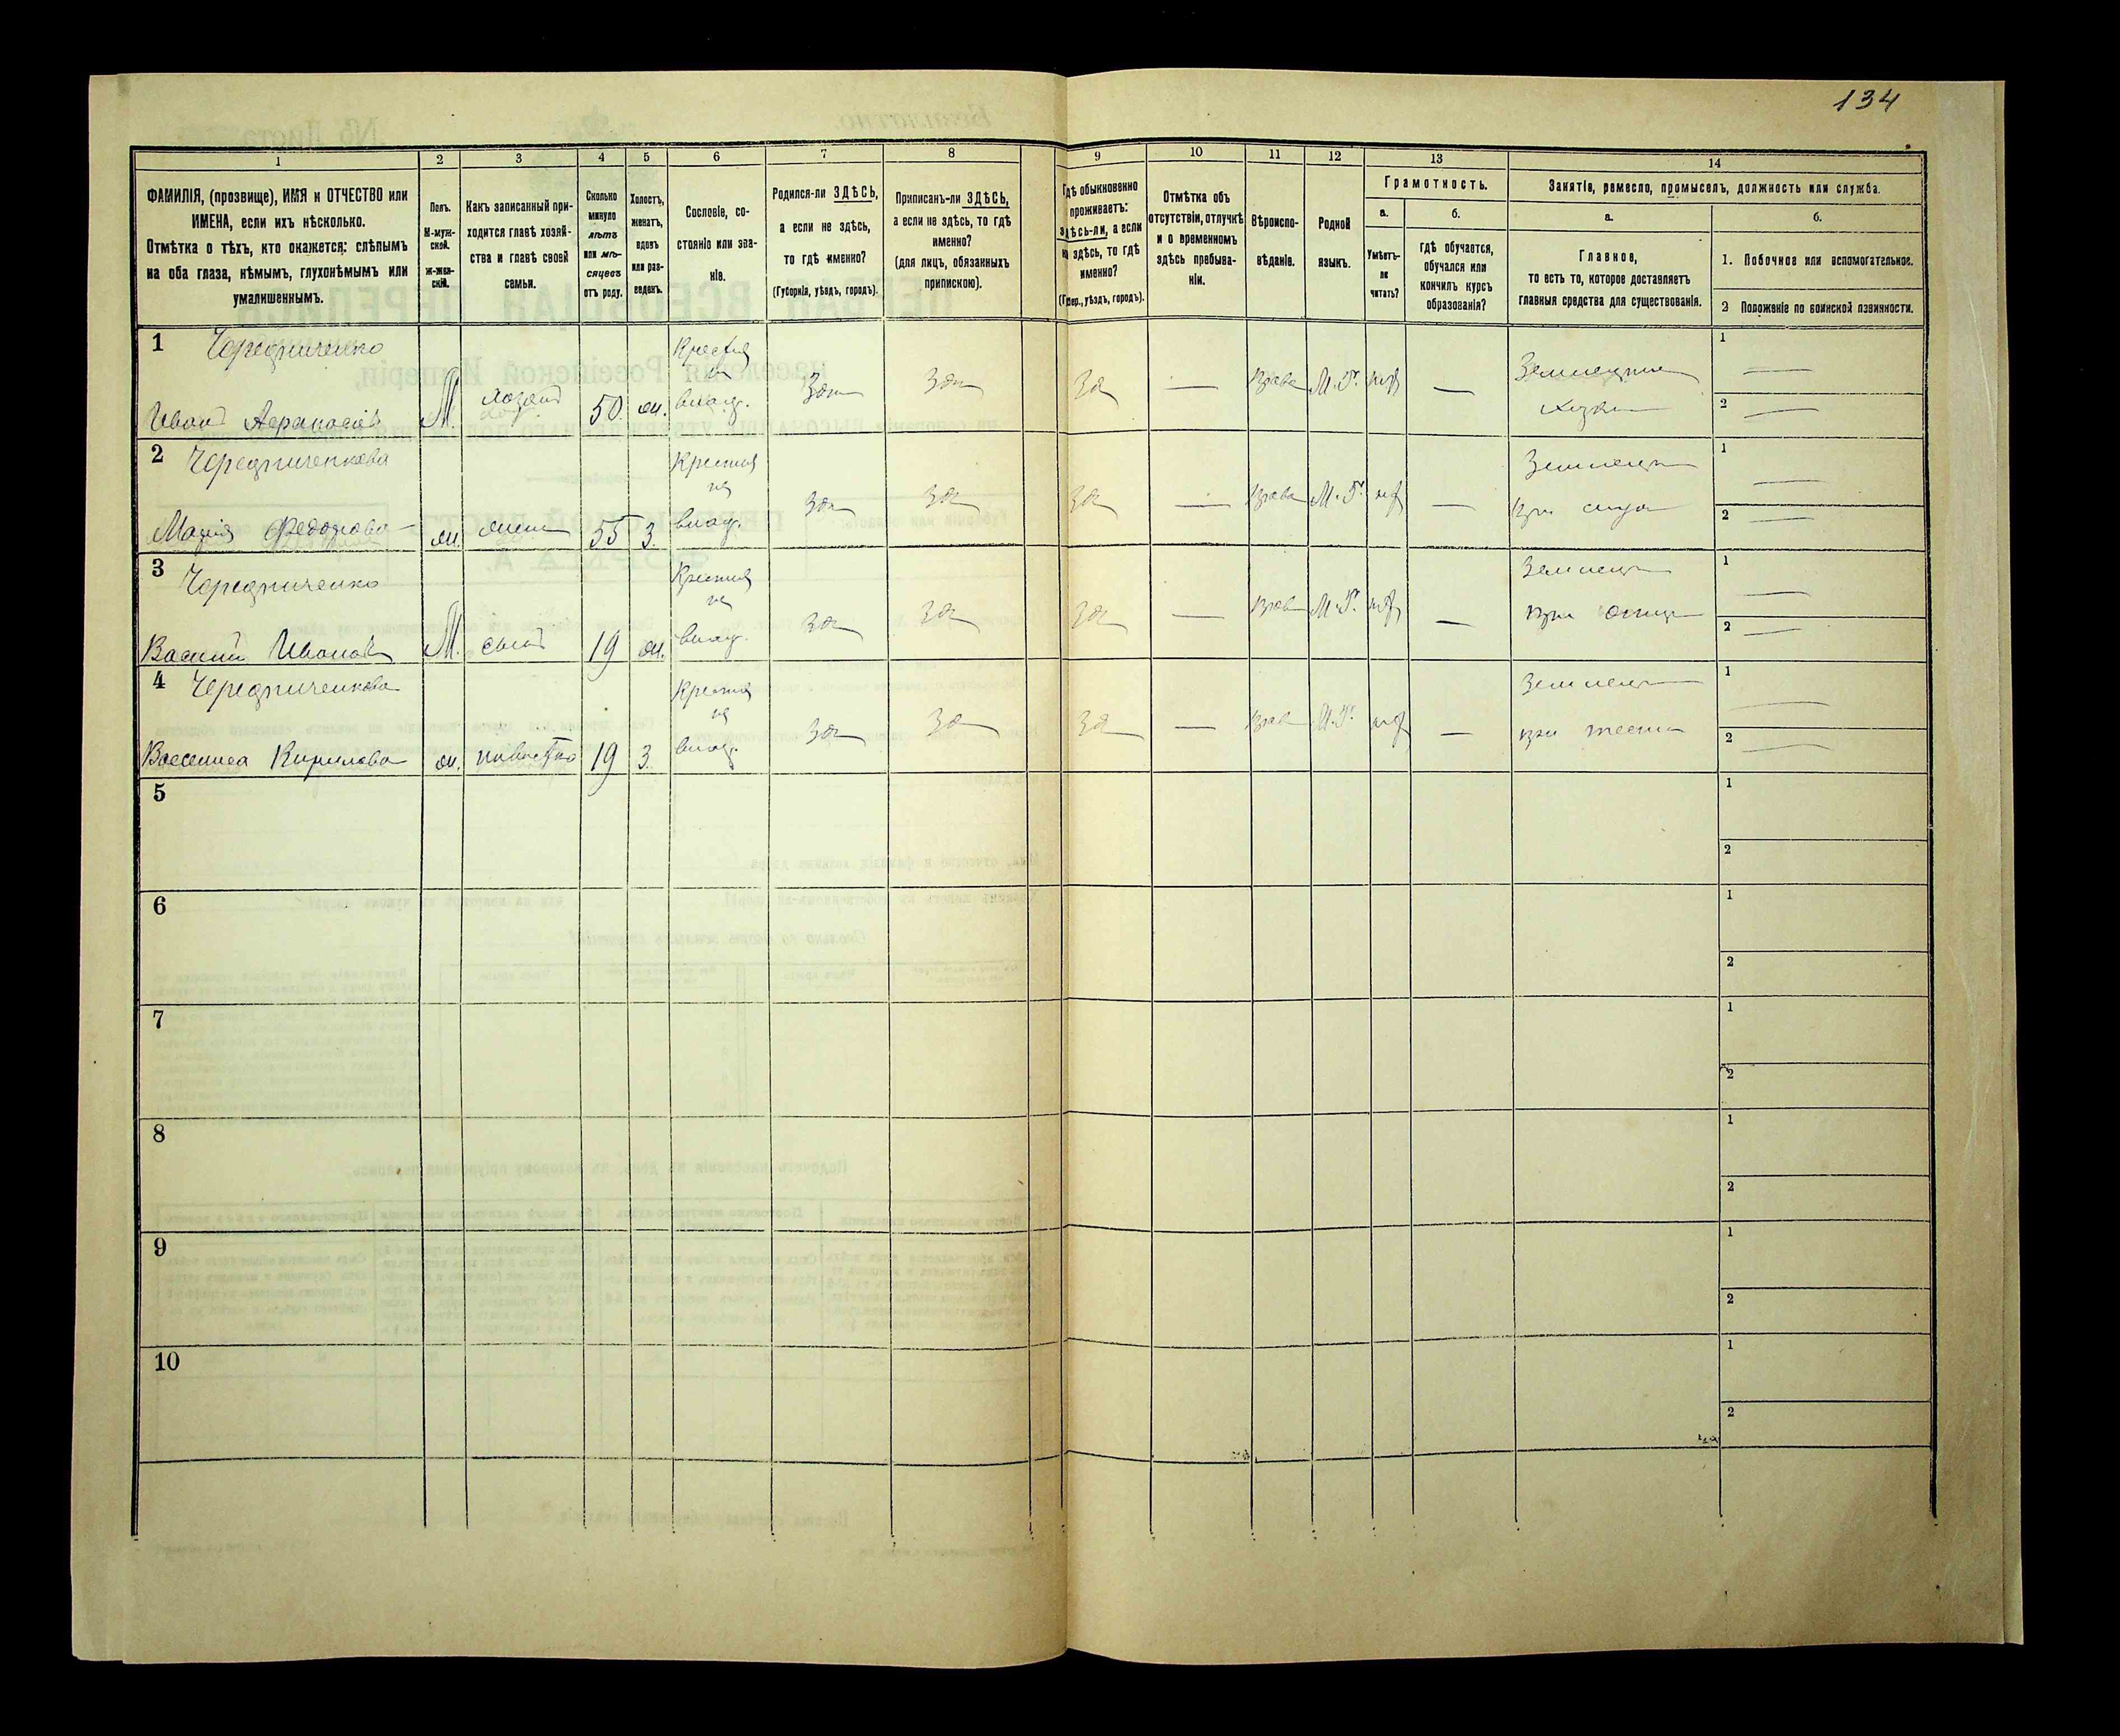 134
1
2
3
4
5
6
7
8
9
10
11
12
13
14
ФАМИЛІЯ, (прозвище), ИМЯ и ОТЧЕСТВО или
ИМЕНА, если ихъ нѣсколько.
Отмѣтка о тѣхъ, кто окажется: слѣпымъ
на оба глаза, нѣмымъ, глухонѣмымъ или
умалишеннымъ.
Полъ.
М-муж-
ской.
ж-жен-
скій.
Какъ записанный при-
ходится главѣ хозяй-
ства и главѣ своей
семьи.
Сколько
минуло
лѣтъ
или мѣ-
сяцевъ
отъ роду.
Холостъ,
женатъ,
вдовъ
или раз-
веденъ.
Сословіе, со-
стояніе или зва-
ніе.
Родился-ли ЗДѢСЬ,
а если не здѣсь,
то гдѣ именно?
(Губернія, уѣздъ, городъ).
Приписанъ-ли ЗДѢСЬ,
а если не здѣсь, то гдѣ
именно?
(для лицъ, обязанныхъ
припискою).
Гдѣ обыкновенно
проживаетъ:
здѣсь-ли, а если
не здѣсь, то гдѣ
именно?
(Губер., уѣздъ, городъ).
Отмѣтка объ
отсутствіи, отлучкѣ
и о временномъ
здѣсь пребыва-
ніи.
Вѣроиспо-
вѣданіе.
Родной
языкъ.
Грамотность.
а.
Умѣетъ-
ли
читать?
б.
гдѣ обучается,
обучался или
кончилъ курсъ
образованія?
Занятіе, ремесло, промыселъ, должность или служба.
а.
Главное,
то есть то, которое доставляетъ
главныя средства для существованія.
б.
1. Побочное или вспомогательное.
2 Положеніе по воинской повинности.
1 Чередниченко
Иванъ Афанасіевъ
М.
хозяинъ
50.
ж.
Крестья
на
влад.
Здѣ
Здѣ
Здѣ
—
Право
М. Р.
нѣт
—
Земледѣл
хозяин
1 —
2 —
2 Чередниченкова
Марія Федорова
ж.
жена
55
З.
Крестья
на
влад.
Здѣ
Здѣ
Здѣ
—
Право
М. Р.
нѣт
—
Земледѣл
при мужѣ
1 —
2 —
3 Чередниченко
Василій Ивановъ
М.
сынъ
19
ж.
Крестья
на
влад.
Здѣ
Здѣ
Здѣ
—
Прав
М. Р.
нѣт
—
Земледѣл
при отцѣ
1 —
2 —
4 Чередниченкова
Васелиса Кирилова
ж.
невѣстка
19
З.
Крестья
на
влад.
Здѣ
Здѣ
Здѣ
—
Прав
М. Р.
нѣт
—
Земледѣл
при тести
1 —
2 —
5
1
2
6
1
2
7
1
2
8
1
2
9
1
2
10
1
2